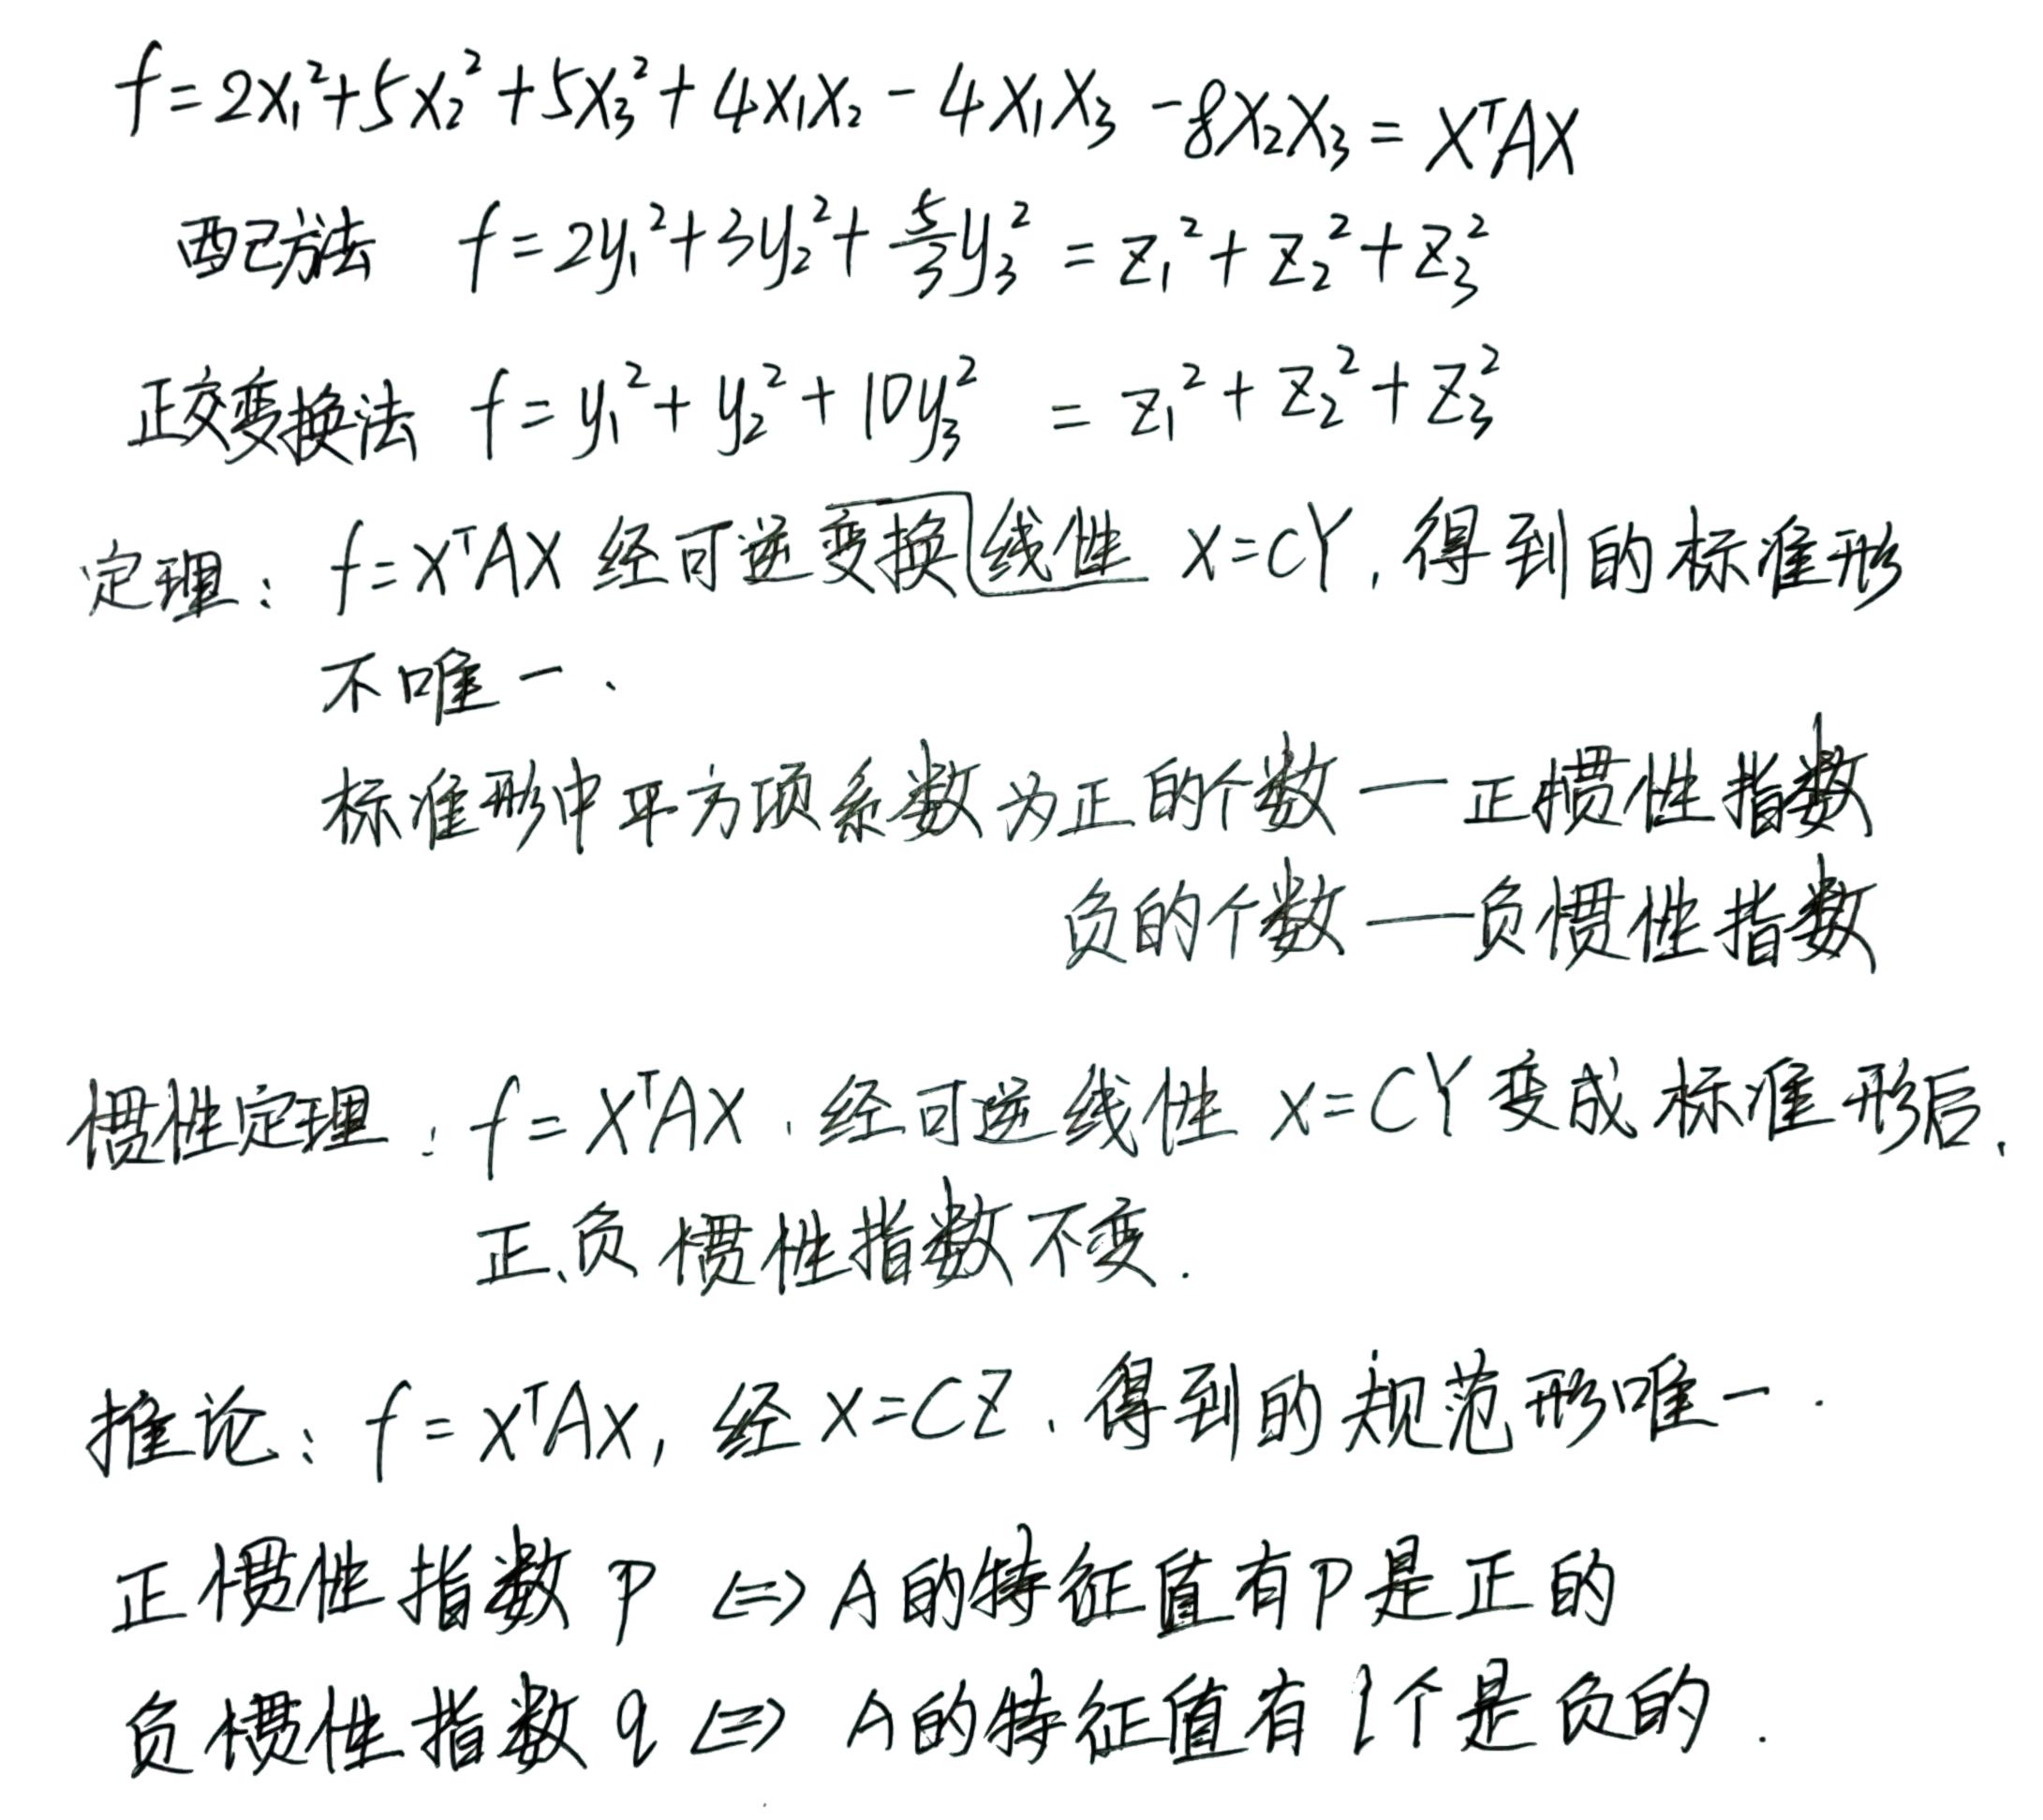 f=2x₁²+5x₂²+5x₃²+4x₁x₂-4x₁x₃-8x₂x₃=XᵀAX
配方法 f=2y₁²+3y₂²+5/3y₃²=z₁²+z₂²+z₃²
正交变换法 f=y₁²+y₂²+10y₃²=z₁²+z₂²+z₃²
定理：f=XᵀAX经可逆变换线性 X=CY，得到的标准形
不唯一.
标准形中平方项系数为正的个数—正惯性指数
负的个数—负惯性指数
惯性定理：f=XᵀAX，经可逆线性 X=CY变成标准形后，
正、负惯性指数不变.
推论：f=XᵀAX，经X=CZ，得到的规范形唯一.
正惯性指数 P ⇔ A的特征值有P是正的
负惯性指数 q ⇔ A的特征值有 个是负的.